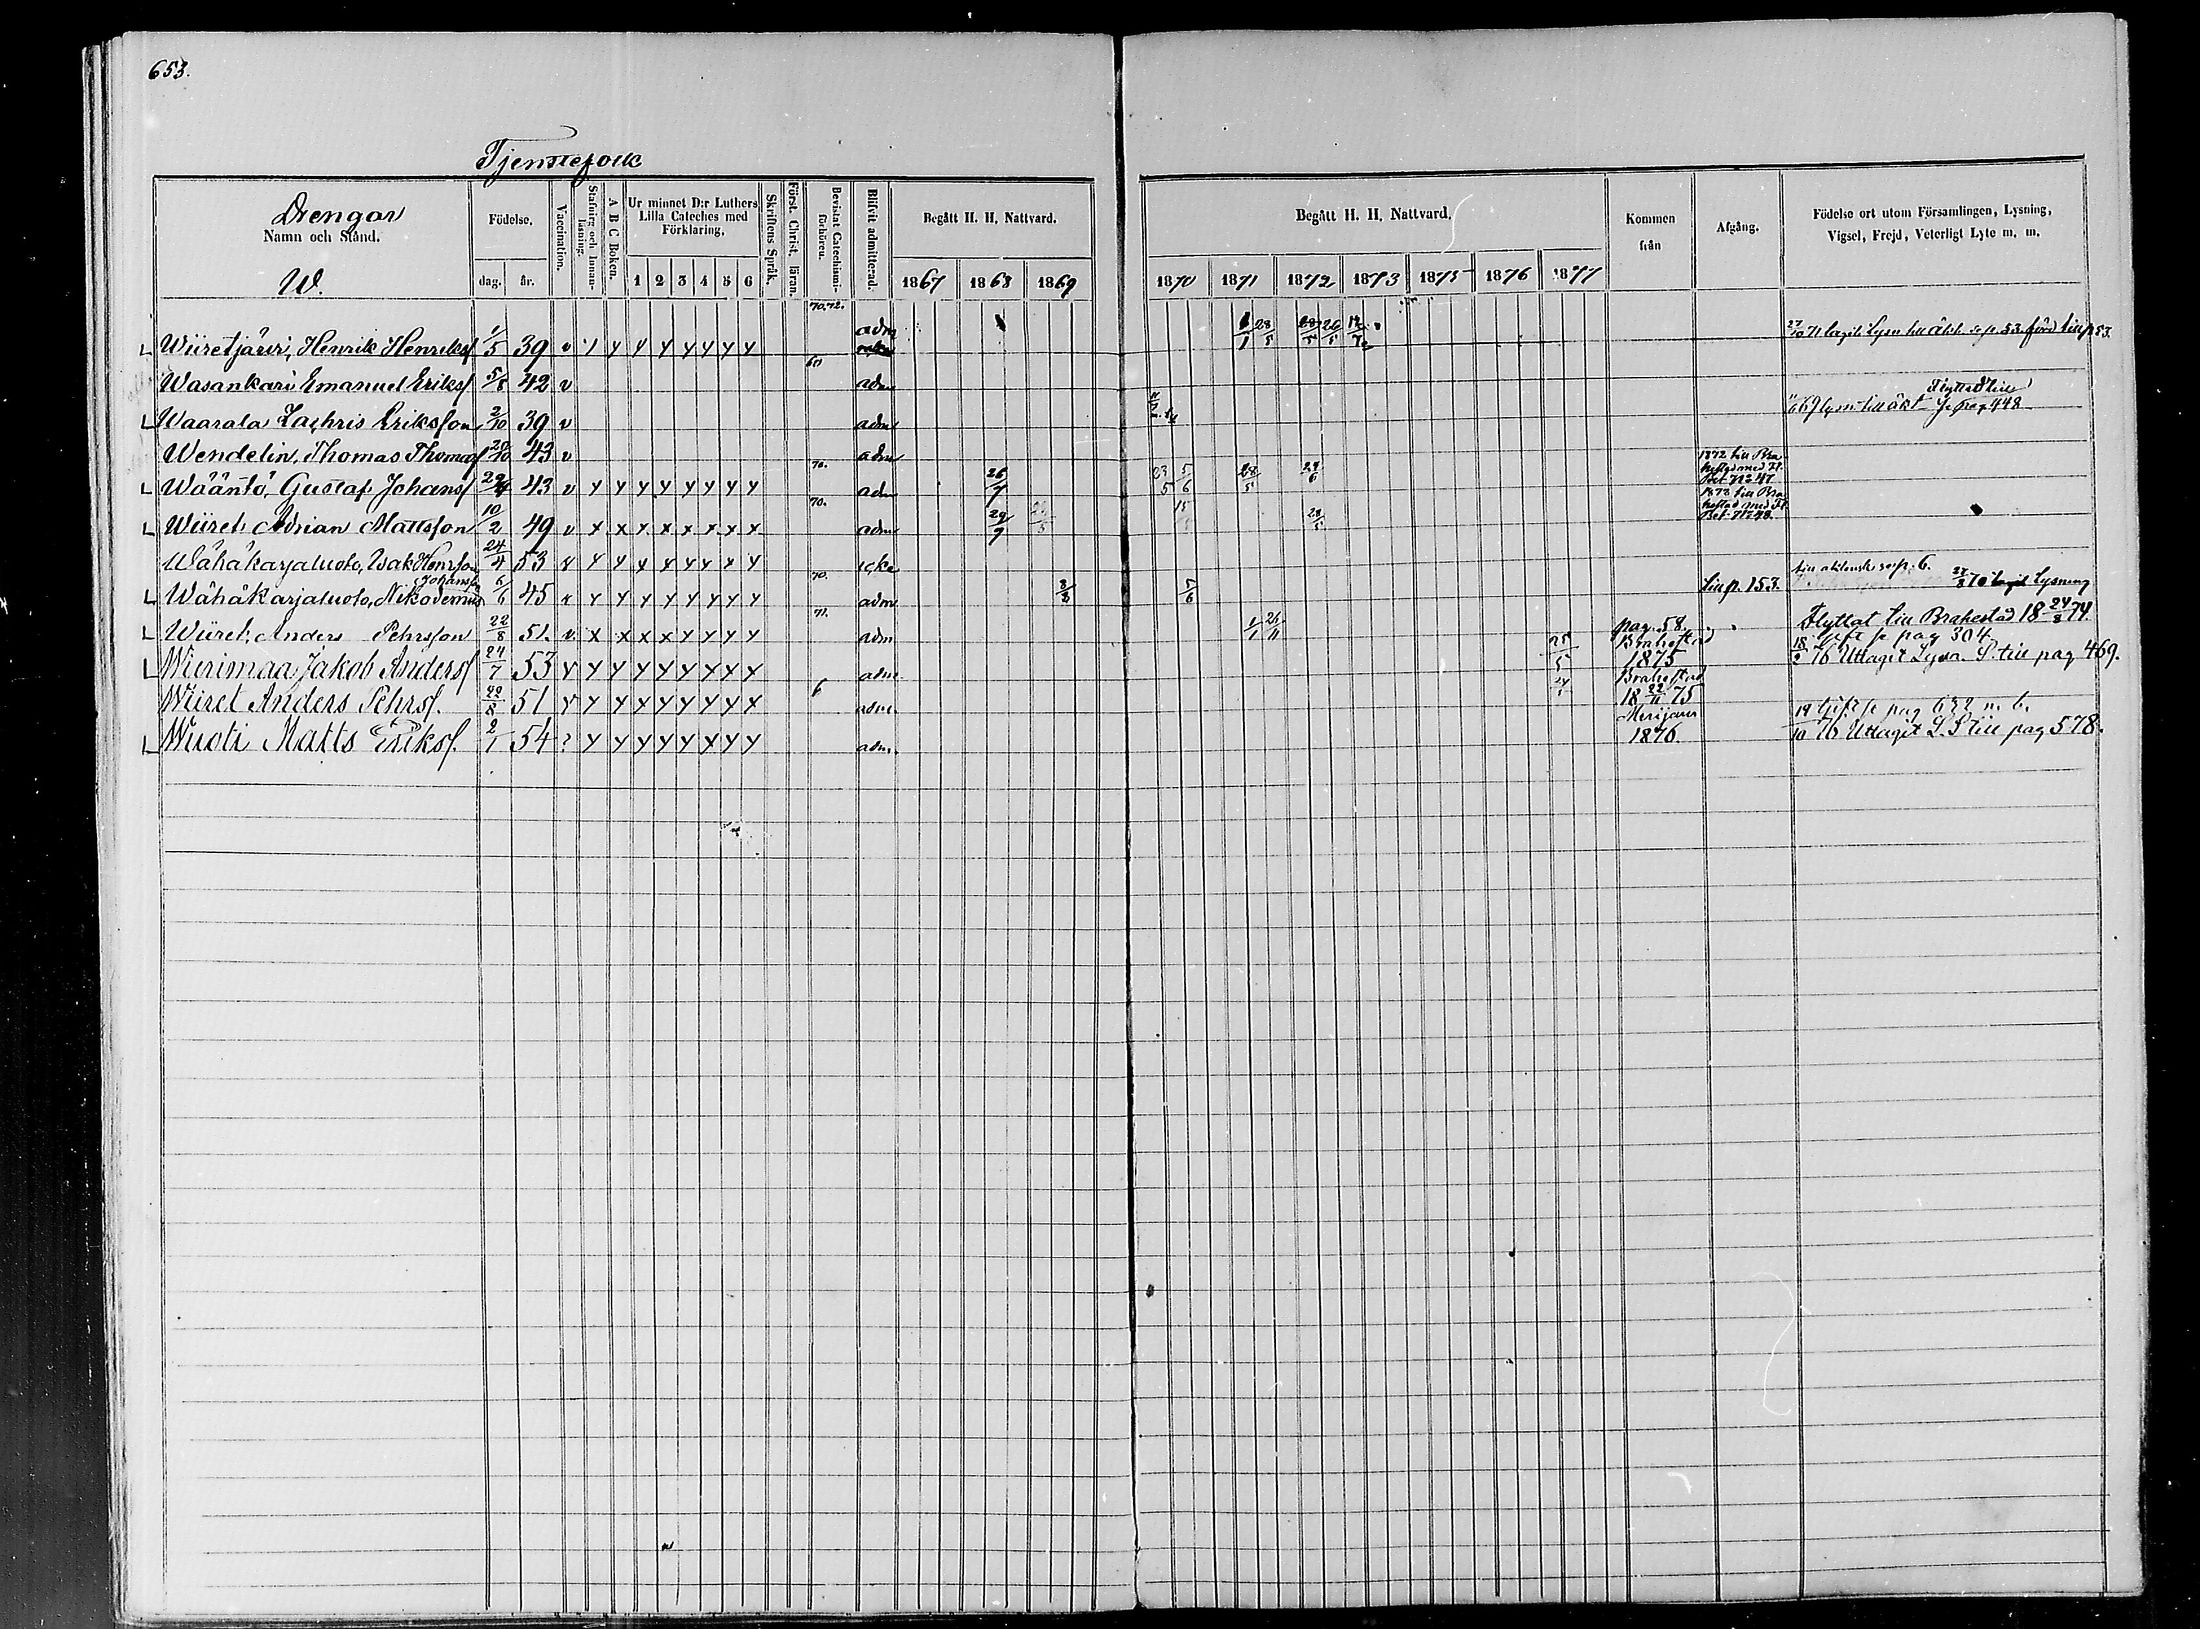 653.
Tjenstefolk
Drengar
Namn och Stånd.
W.
Födelse.
dag. år.
Vaccination.
Stafning och Innanläsning.
A B C Boken.
Ur minnet D:r Luthers Lilla Cateches med Förklaring.
1 2 3 4 5 6
Skriftens Språk.
Först. Christ. läran.
Bevistat Catechismiförhören.
Blifvit admitterad.
Begått H. H. Nattvard.
1867 1868 1869
Begått H. H. Nattvard.
1870 1871 1872 1873 1875 1876 1877
Kommen från
Afgång.
Födelse ort utom Församlingen, Lysning, Vigsel, Frejd, Veterligt Lyte m. m.
Wiiretjärvi, Henrik Henriksf 1/5 39 v 70.72. adm 1/1 28/5 27/10 71 tagit Lysn till äkt. se p. 53. förd till p 53.
Wasankari Emanuel Eriksf 5/8 42 v adm
Waarala Zachris Eriksson 2/10 39 v adm 69 lysn till äkt Flyttad till pag 448
Wendelin, Thomas Thomasf 20/10 43 v adm
Wääntö, Gustaf Johansf 43 v y y y y y y y y 70. adm 26/7 23/5 5/6 28/5 1872 till Brahestad med Fl. Bet. No 47
Wiiret Adrian Mattsson 10/2 49 v x x x x x x x x 70. adm 29/7 28/5 1872 till Brahestad med Fl. Bet. No 48.
Wähäkarjaluoto, Isak Henrsson 24/4 53 y y y y y y y y icke
Wähäkarjaluoto, Nikodemus Johansson 6/6 45 y y y y y y y y 70. adm 5/6 till p. 153. 70 tagit Lysning
Wiiret, Anders Pehrsson 22/8 51. v x x x x y y y y 71. adm pag. 58. Flyttat till Brahestad 18 24/8 74.
Wierimaa Jakob Andersf 24/7 53 y y y y y y y y y adm 25/5 Brahestad 1875 Gift se pag 304 76 Uttagit Lysn. S. till pag 469.
Wiiret Anders Pehrsf. 22/8 51 y y y y y y y y y adm. Brahestad 18 22/11 75
Wuoti Matts Eriksf. 2/1 54 ? y y y y y x y y adm. Merijärvi 1876. Gift se pag 632 n. 6. 19/10 76 Uttagit L. S till pag 578.